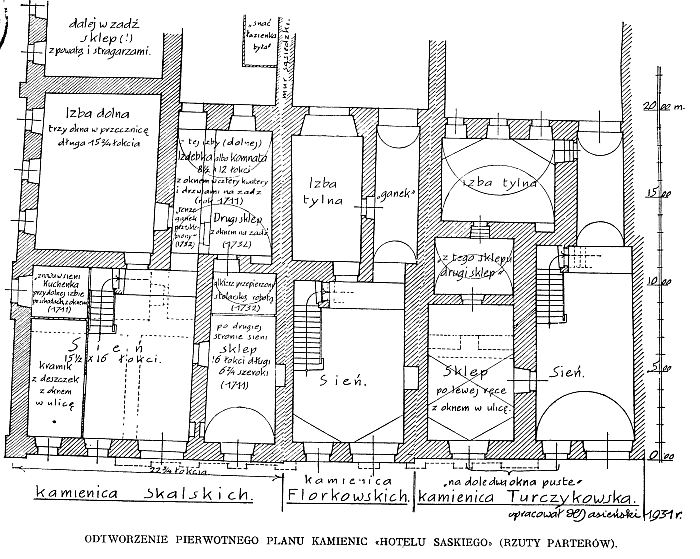 dalej w zadź
sklep (!)
z powałą i stragarzami.
„snać
łazienka
była"
mur sąsiedzki
Izba dolna
trzy okna w przecznicę
długa 15¾ łokcia
tej izby (dolnej)
Izdebka albo Komnata
8½ x 12 łokci
z oknem w cztery kwatery
i drzwiami na zadź
(rok 1711)
Drugi sklep
z oknem na zadź
(1732)
Izba
tylna
„ganek"
izba tylna
„z tego sklepu
drugi sklep"
„znowu w sieni
Kuchenka
(1711)
alkierz przepierzony
stolarską robotą
(1732)
Sień
15½ x 16 łokci.
Kramik
z deszczek
z oknem
w ulicę
po drugiej
stronie sieni
sklep
16 łokci długi
6¾ szeroki
(1711)
Sień.
Sklep
po lewej ręce
z oknem w ulicę.
Sień.
20.00 m.
15.00
10.00
5.00
0.00
22¾ łokcia
„na dole dwa okna puste"
kamienica Skalskich.
kamienica
Florkowskich.
kamienica Turczykowska.
opracował Jasieński 1931 r.
ODTWORZENIE PIERWOTNEGO PLANU KAMIENIC «HOTELU SASKIEGO» (RZUTY PARTERÓW).